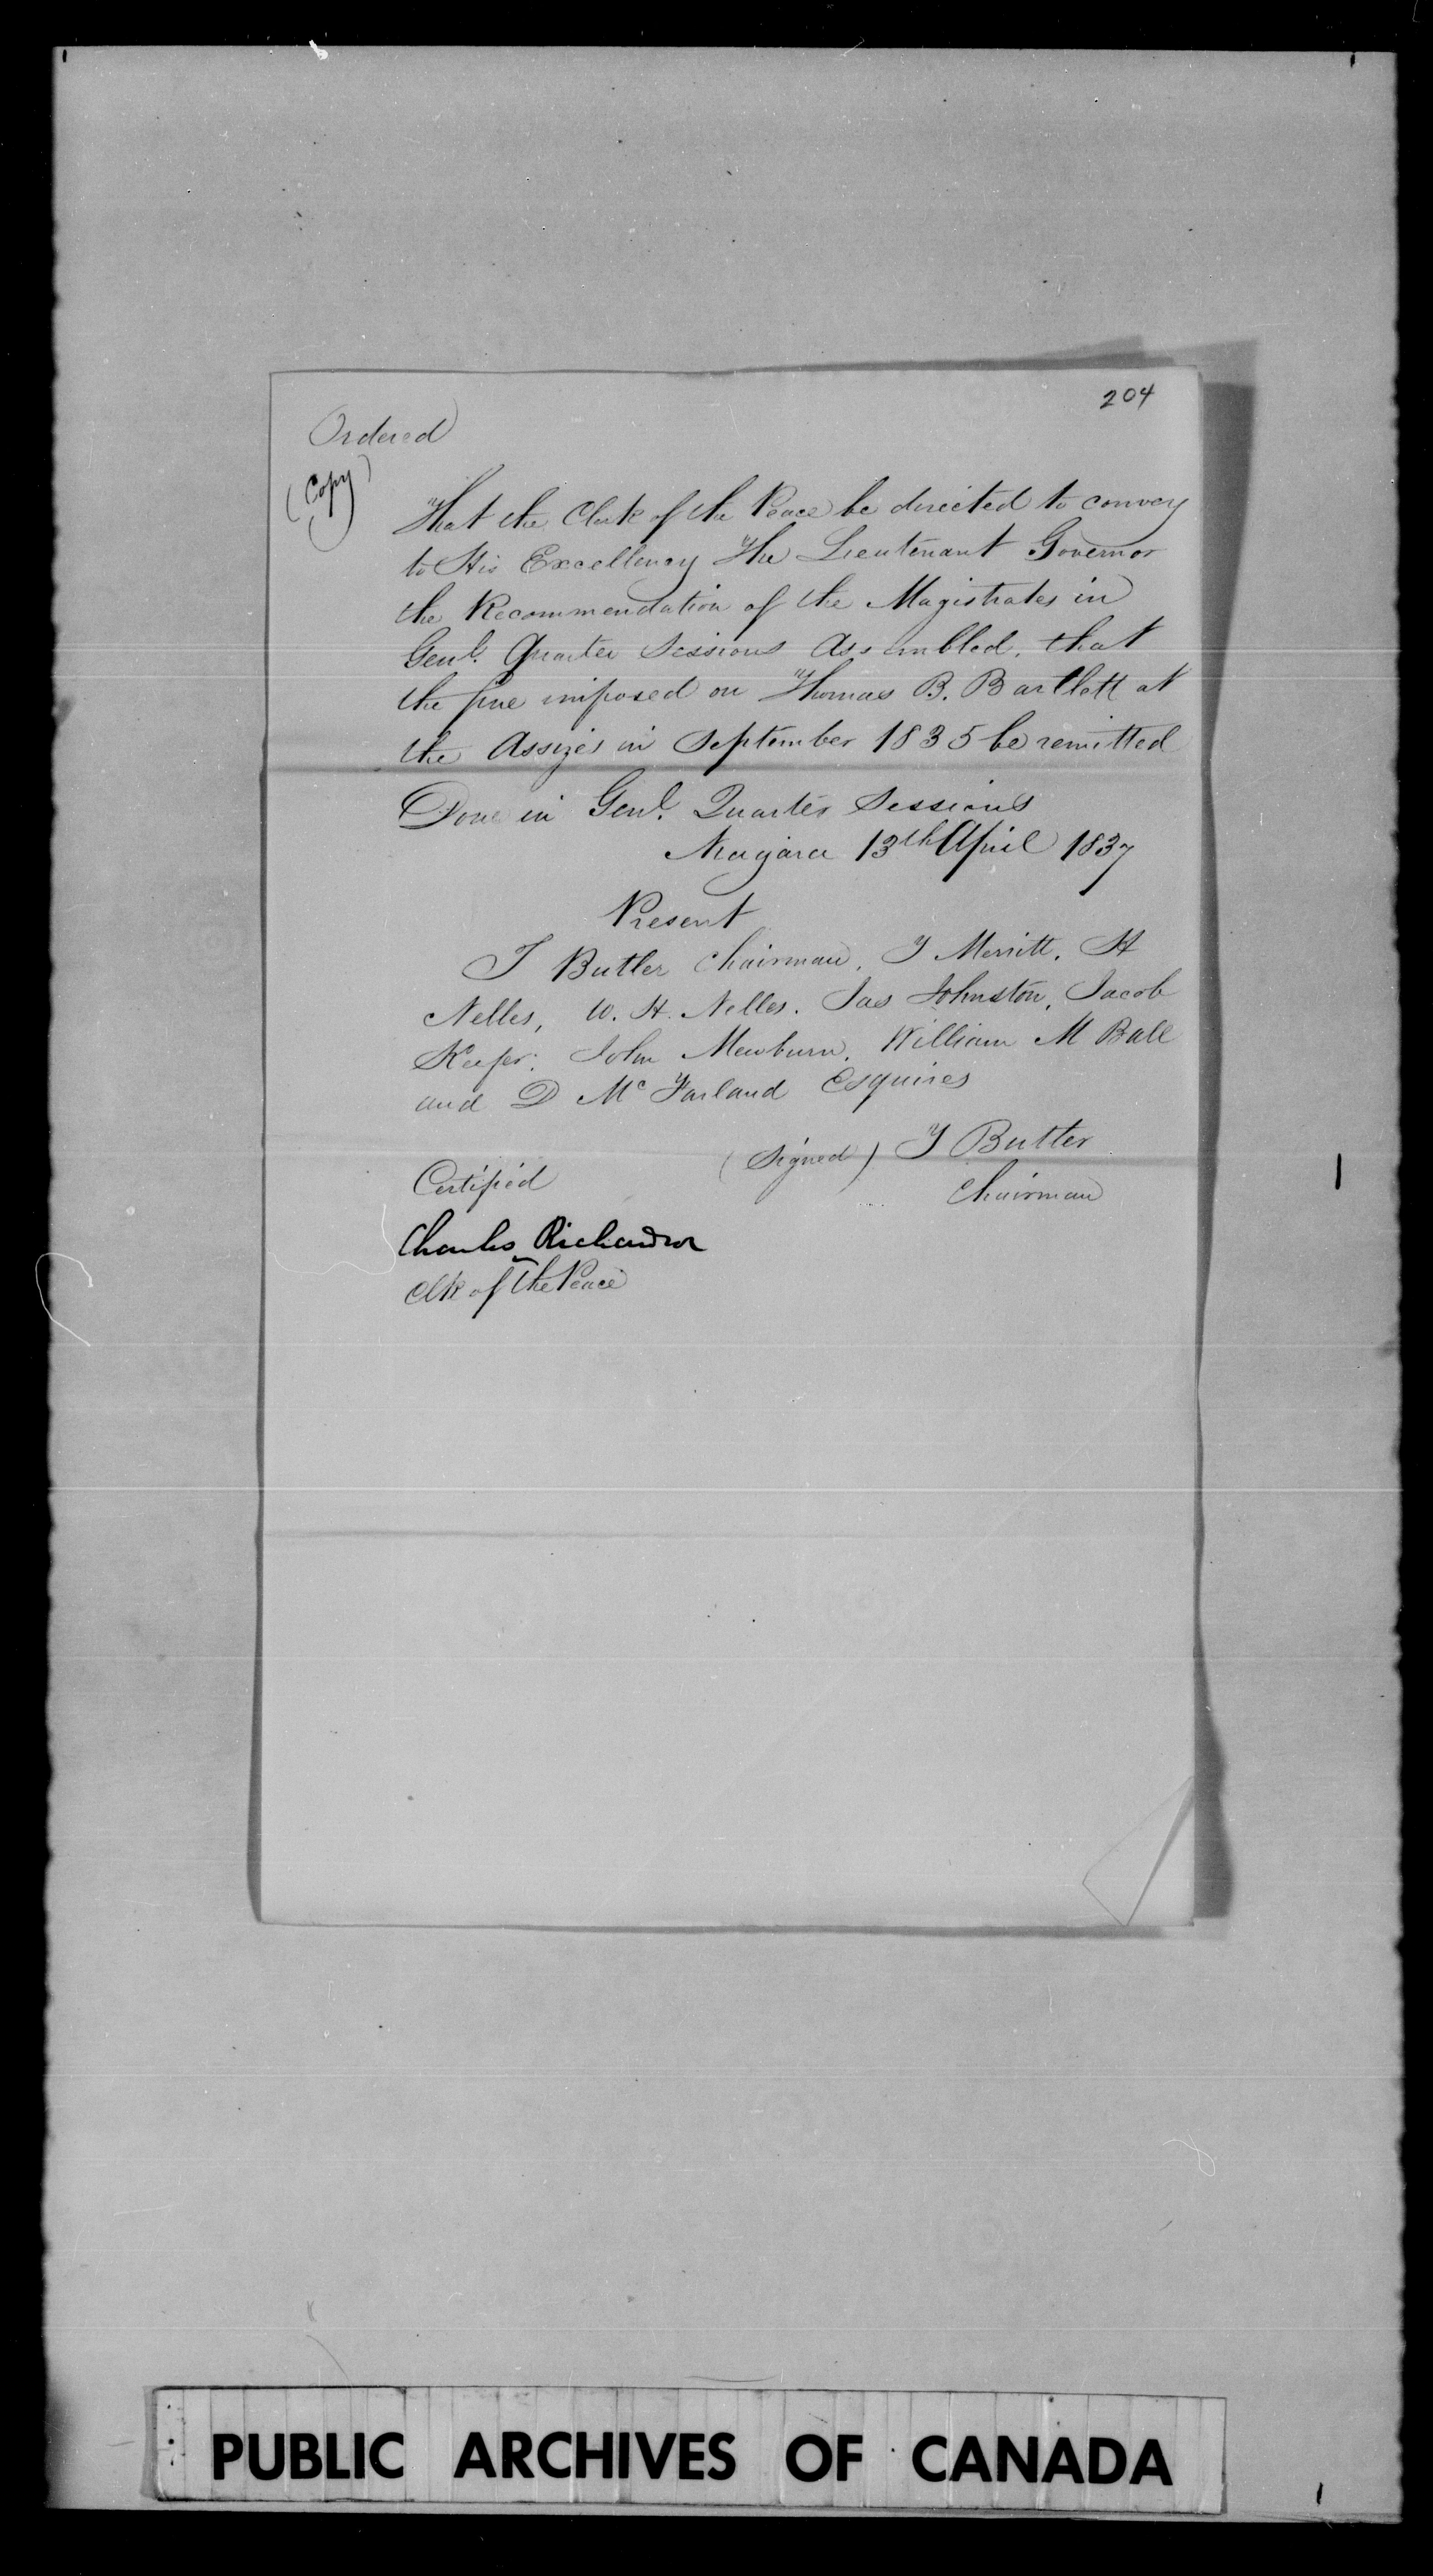 204
Ordered
(Copy)
That the Clerk of the Peace be directed to convey
to His Excellency The Lieutenant Governor
the Recommendation of the Magistrates in
Genl. Quarter Sessions Assembled, that
the fine imposed on Thomas B. Bartlett at
the Assizes in September 1835 be remitted
Done in Genl. Quarter Sessions
Niagara 13th April 1837
Present
T Butler Chairman, T Merritt, H
Nelles, W. H. Nelles. Jas Johnston, Jacob
Keefer, John Mewburn, William M Ball
and D McFarland Esquires
(Signed) T Butler
Chairman
Certified
Charles Richardson
Clk of the Peace
PUBLIC ARCHIVES OF CANADA